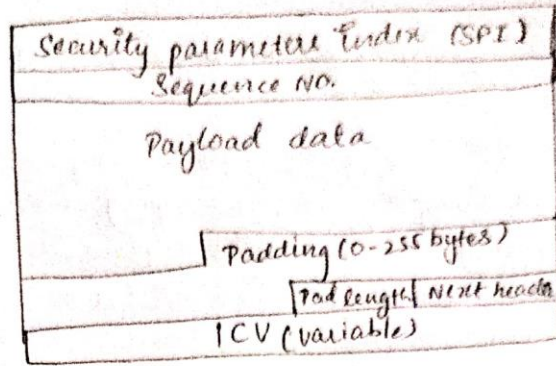 Security parameters Index (SPI)
Sequence NO.
Payload data
Padding (0-255 bytes)
Pad length Next header
ICV (variable)